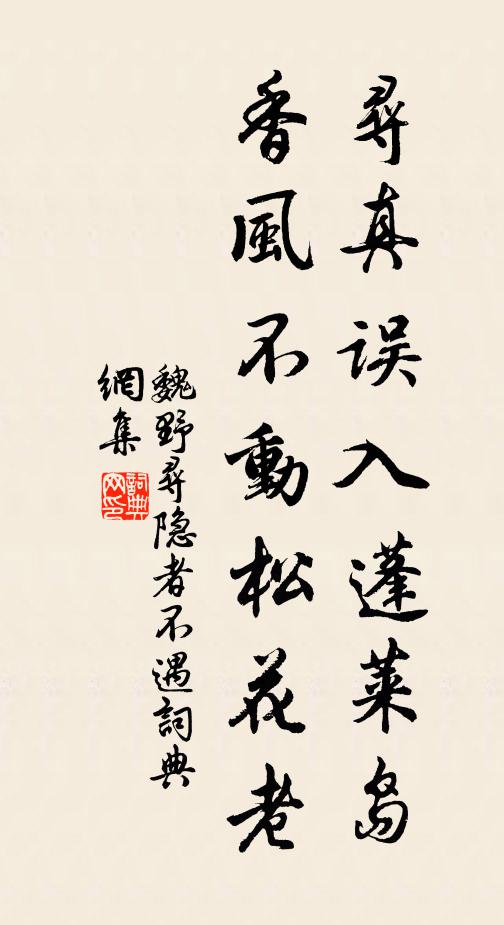 尋真误入蓬莱岛
香風不動松花老
魏野尋隐者不遇詞典
網集
詞典
网印